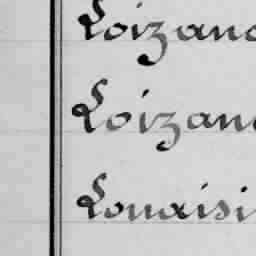 Loizanc
Loizan
Louaisi